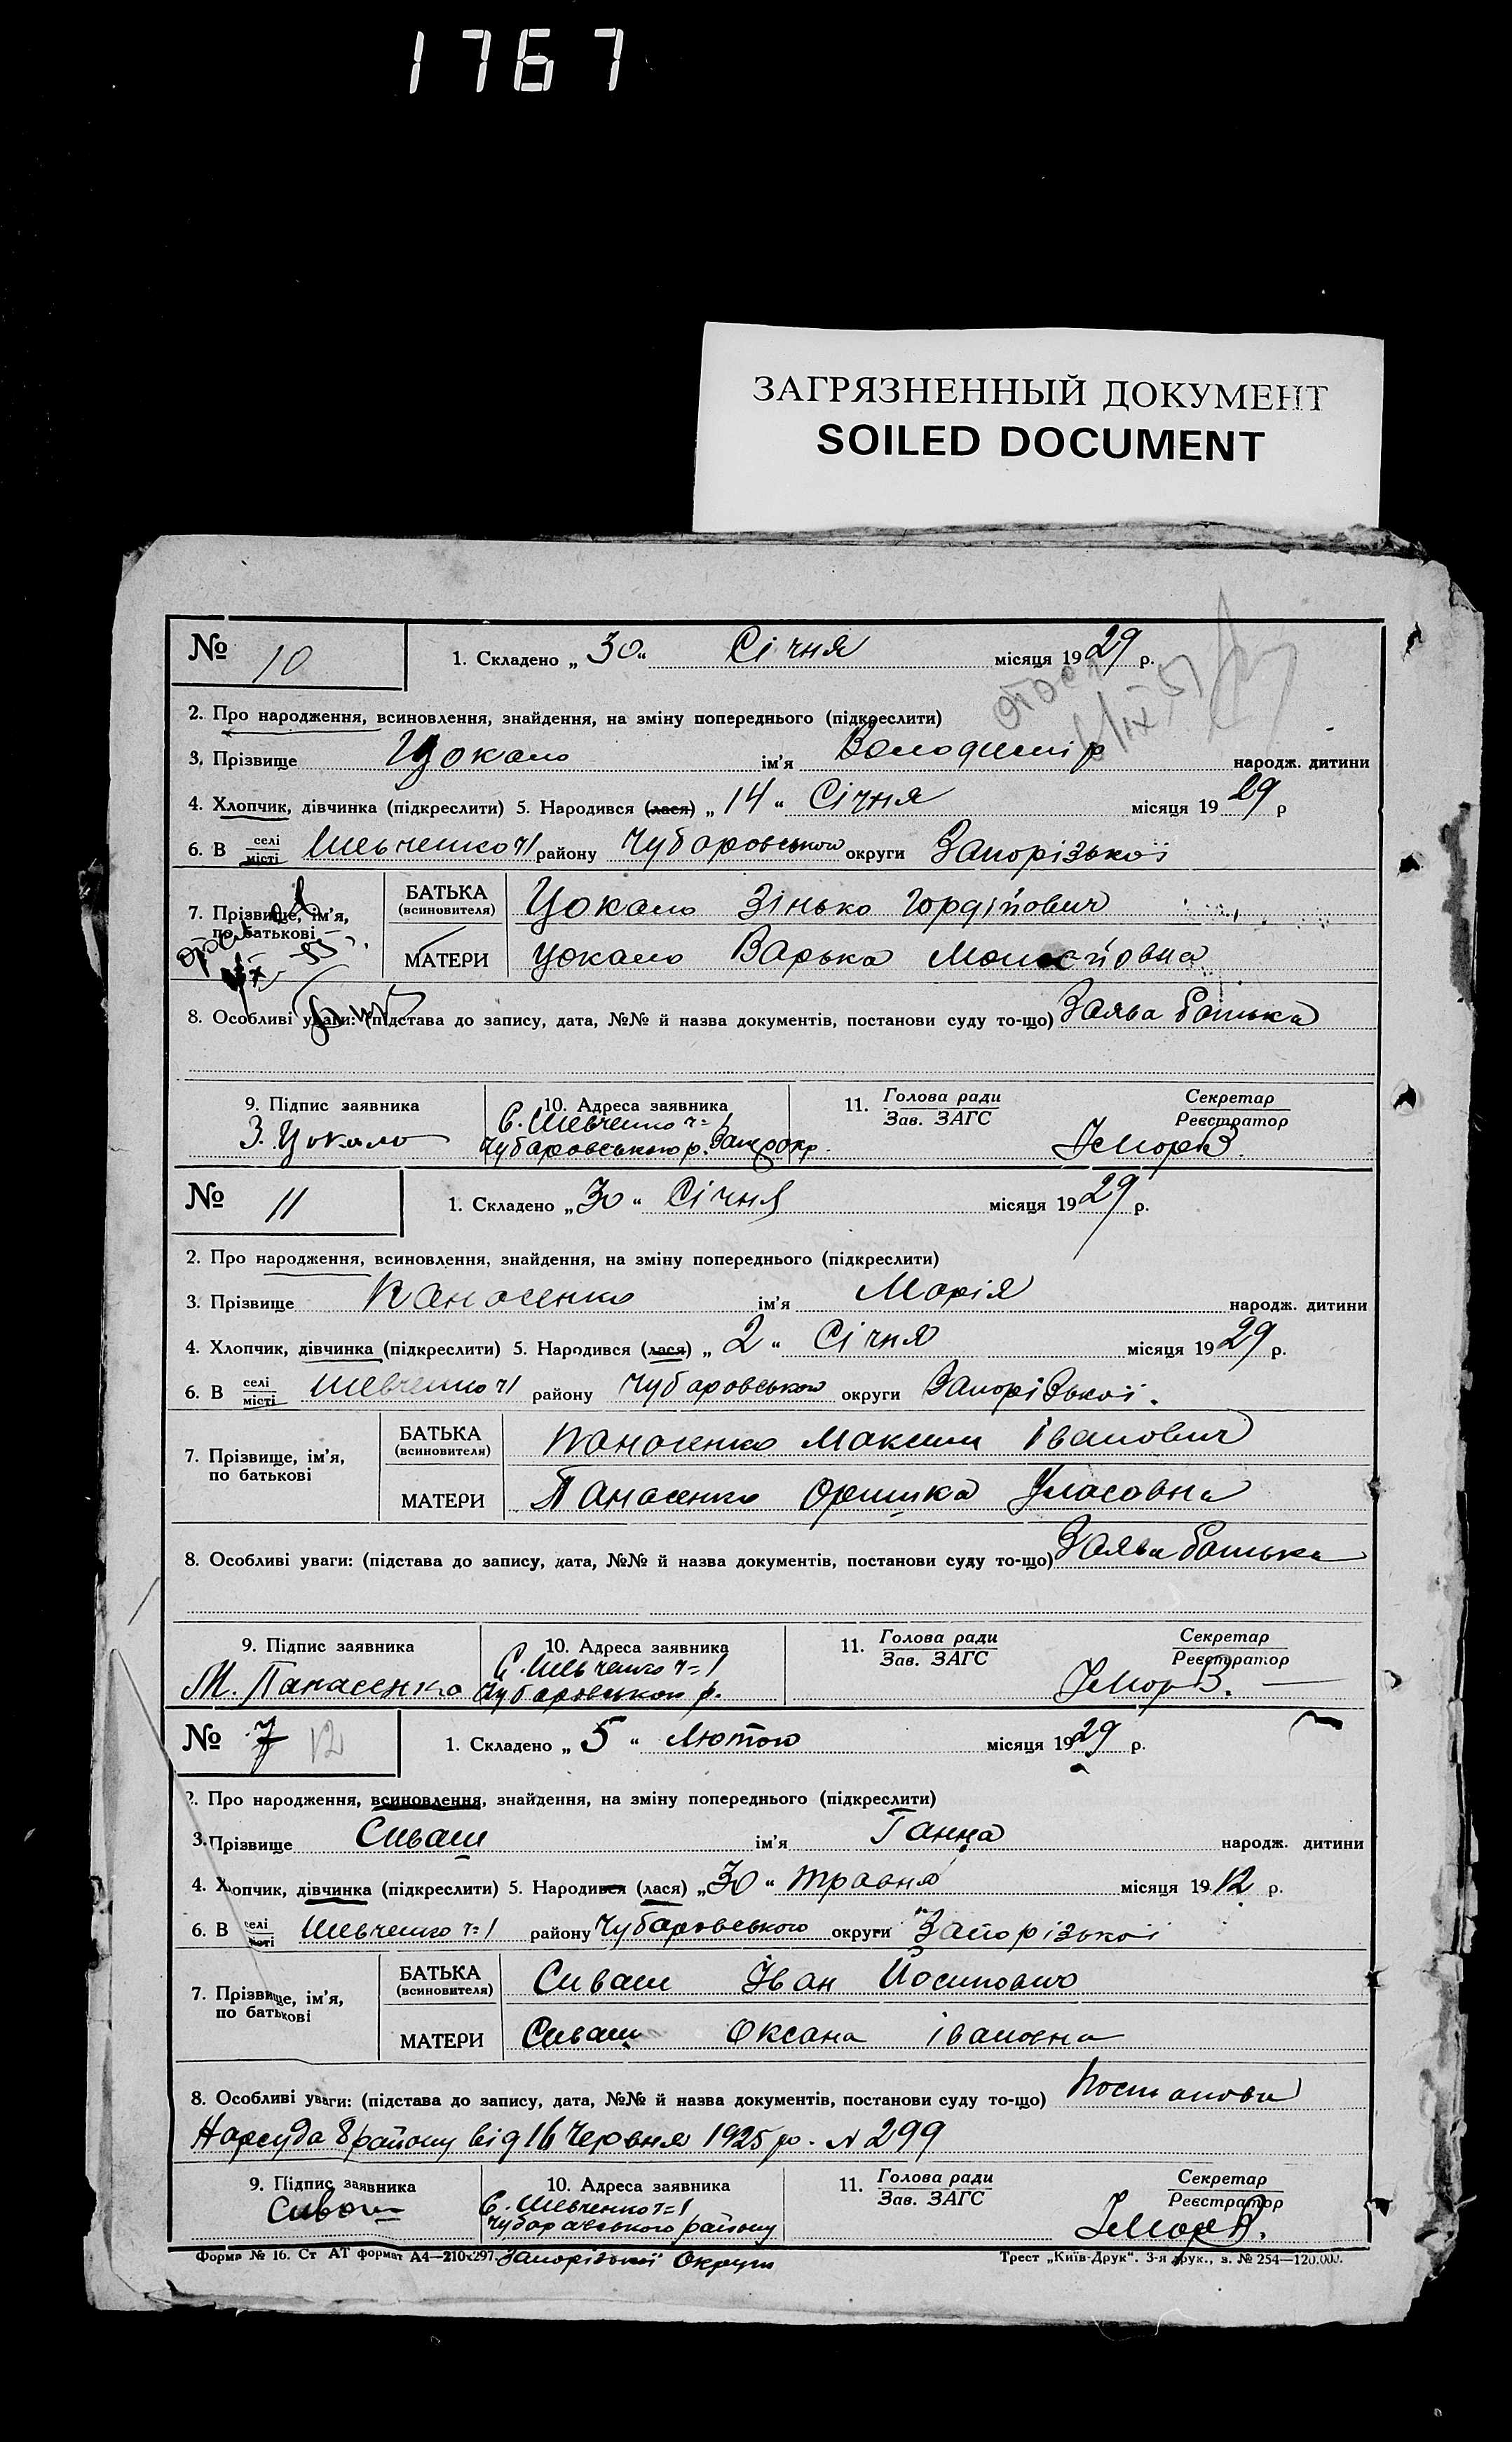 1767
ЗАГРЯЗНЕННЫЙ ДОКУМЕНТ
SOILED DOCUMENT
№ 10
1. Складено „ 30 “ Січня місяця 1929 р.
2. Про народження, всиновлення, знайдення, на зміну попереднього (підкреслити)
3. Прізвище Цокало ім'я Володимір народж. дитини
4. Хлопчик, дівчинка (підкреслити) 5. Народився (лася) „ 14 “ Січня місяця 1929 р
6. В селі місті Шевченко ч1 району Чубаровського округи Запорізької
7. Прізвище, ім'я, по батькові
БАТЬКА (всиновителя) Цокало Зінько Гордійович
МАТЕРИ Цокало Варька
8. Особливі уваги: (підстава до запису, дата, №№ й назва документів, постанови суду то-що) Заява батька
9. Підпис заявника 10. Адреса заявника 11. Голова ради Зав. ЗАГС Секретар Реєстратор
З. Цокало С. Шевченко ч=1
Чубаровського р. Запор окр.
№ 11
1. Складено „ 30 “ Січня місяця 1929 р.
2. Про народження, всиновлення, знайдення, на зміну попереднього (підкреслити)
3. Прізвище Панасенко ім'я Марія народж. дитини
4. Хлопчик, дівчинка (підкреслити) 5. Народився (лася) „ 2 “ Січня місяця 1929 р.
6. В селі місті Шевченко ч1 району Чубаровського округи Запорізької.
7. Прізвище, ім'я, по батькові
БАТЬКА (всиновителя) Панасенко Максим Іванович
МАТЕРИ Панасенко Оришка Уласовна
8. Особливі уваги: (підстава до запису, дата, №№ й назва документів, постанови суду то-що) Заява батька
9. Підпис заявника 10. Адреса заявника 11. Голова ради Зав. ЗАГС Секретар Реєстратор
М. Панасенко С. Шевченко ч=1
Чубаровського р.
№ 7 12
1. Складено „ 5 “ Лютого місяця 1929 р.
2. Про народження, всиновлення, знайдення, на зміну попереднього (підкреслити)
3. Прізвище Сиваш ім'я Ганна народж. дитини
4. Хлопчик, дівчинка (підкреслити) 5. Народився (лася) „ 30 “ травня місяця 1912 р.
6. В селі місті Шевченко ч=1 району Чубаровського округи Запорізької
7. Прізвище, ім'я, по батькові
БАТЬКА (всиновителя) Сиваш Іван Йосипович
МАТЕРИ Сиваш Оксана Івановна
8. Особливі уваги: (підстава до запису, дата, №№ й назва документів, постанови суду то-що) Постанова
Нарсуда 8 району від 16 Червня 1925 р. N 299
9. Підпис заявника 10. Адреса заявника 11. Голова ради Зав. ЗАГС Секретар Реєстратор
Сиваш С. Шевченко ч=1
Чубаровського району
Запорізької Округи
Форма № 16. Ст АТ формат А4—210х297.
Трест „Київ-Друк“. 3-я друк., з. № 254—120.000.